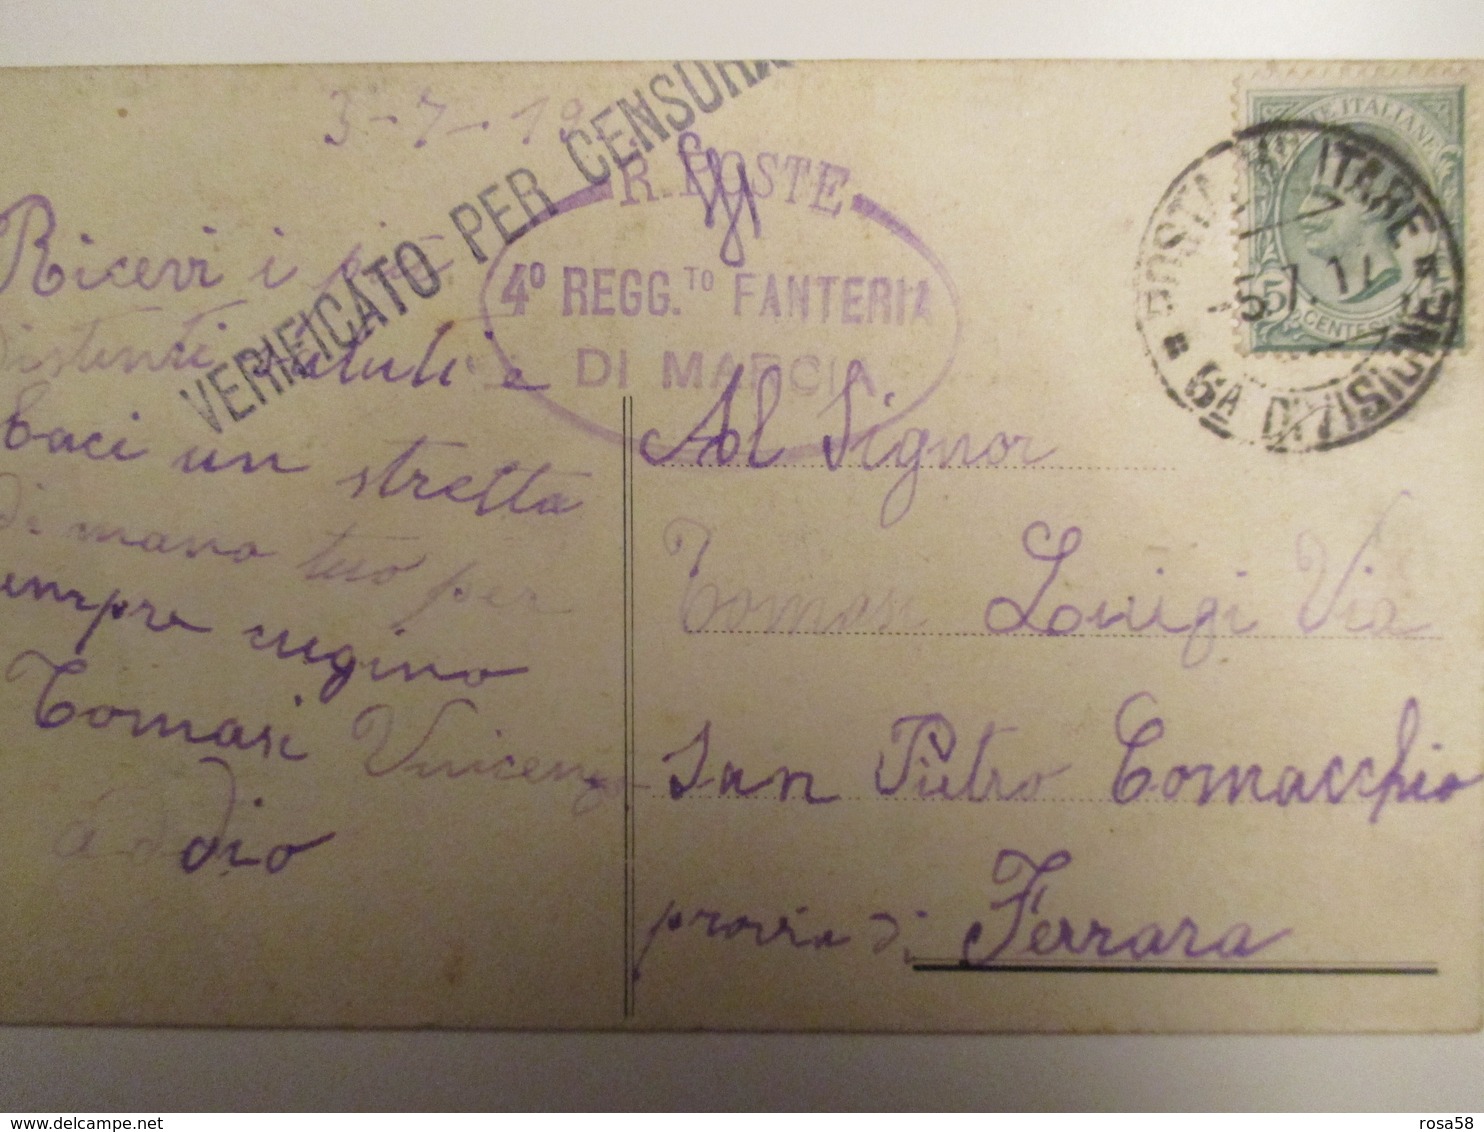 3-7-19
VERIFICATO PER CENSURA
R. POSTE
4° REGG.TO FANTERIA
DI MARCIA
POSTA MILITARE
5.7.17
6A DIVISIONE
POSTE ITALIANE
5 CENTES
Ricevi i più
distinti saluti e
baci un stretta
di mano tuo per
sempre cugino
Tomasi Vincenzo
addio
Al Signor
Tomasi Luigi Via
San Pietro Comacchio
provia di Ferrara
delcampe.net
rosa58